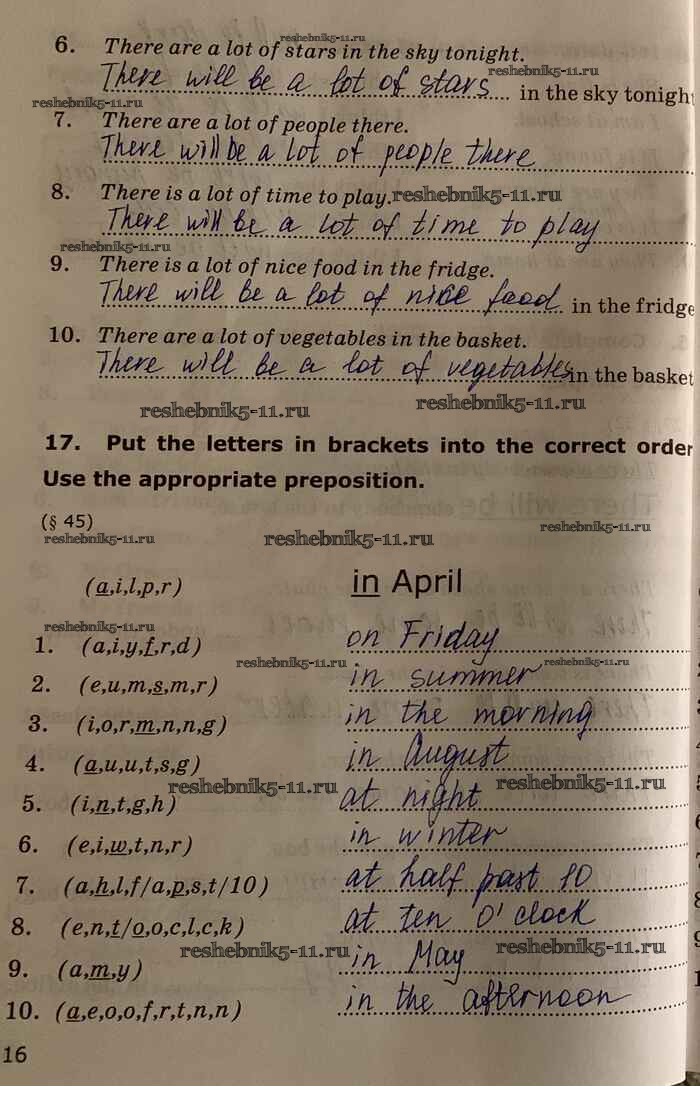 reshebnik5-11.ru
6. There are a lot of stars in the sky tonight.
There will be a lot of stars in the sky tonight
reshebnik5-11.ru
reshebnik5-11.ru
7. There are a lot of people there.
There will be a lot of people there
8. There is a lot of time to play. reshebnik5-11.ru
There will be a lot of time to play
reshebnik5-11.ru
9. There is a lot of nice food in the fridge.
There will be a lot of nice food in the fridge
10. There are a lot of vegetables in the basket.
There will be a lot of vegetables in the basket
reshebnik5-11.ru reshebnik5-11.ru
17. Put the letters in brackets into the correct order
Use the appropriate preposition.
(§ 45)
reshebnik5-11.ru reshebnik5-11.ru reshebnik5-11.ru
(a,i,l,p,r) in April
reshebnik5-11.ru
1. (a,i,y,f,r,d) on Friday
reshebnik5-11.ru reshebnik5-11.ru
2. (e,u,m,s,m,r) in summer
3. (i,o,r,m,n,n,g) in the morning
4. (a,u,u,t,s,g) in August
reshebnik5-11.ru reshebnik5-11.ru
5. (i,n,t,g,h) at night
6. (e,i,w,t,n,r) in winter
7. (a,h,l,f/a,p,s,t/10) at half past 10
8. (e,n,t/o,o,c,l,c,k) at ten o'clock
reshebnik5-11.ru reshebnik5-11.ru
9. (a,m,y) in May
10. (a,e,o,o,f,r,t,n,n) in the afternoon
16